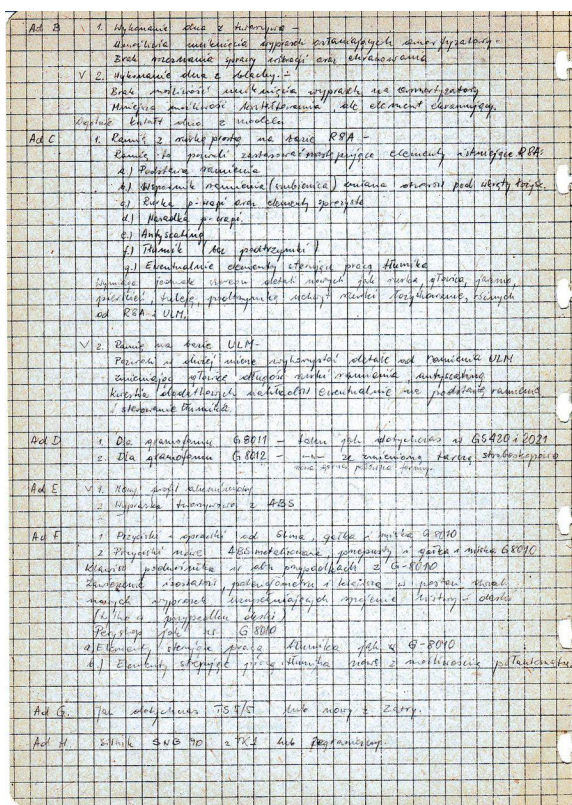 Ad B 1. Wykonanie dna z tworzywa -
Umożliwia uniknięcia wyprasek osłaniających amortyzatory.
Brak rozeznania sprawy wibracji oraz ekranowania
V 2. Wykonanie dna z blachy. -
Brak możliwości uniknięcia wyprasek na amortyzatory
Mniejsza możliwość kształtowania, ale element ekranujący.
kształt dna z modelu
Ad C 1. Ramię z rurką prostą na bazie R8A -
Ramię to pozwoli zastosować następujące elementy istniejące R8A:
a.) Podstawa ramienia
b.) Wspornik ramienia (szubienica) zmiana otworów pod wkręty łożysk.
c.) Rurka p-wagi oraz elementy sprężyste
d.) Nasadka p-wagi.
e.) Antyscating
f.) Tłumik (bez podtrzymki)
g.) Ewentualnie elementy sterujące pracą tłumika
Wymaga jednak szeregu detali nowych jak rurka, głowica, jarzmo,
pierścień, tuleja, podtrzymka, uchwyt rurki łożyskowanie, różnych
od R8A i ULM.
V 2. Ramię na bazie ULM-
Pozwoli w dużej mierze wykorzystać detale od ramienia ULM
zmieniając głowicę długość rurki ramienia, antyscating
Kwestia dodatkowych nakładów ewentualnie na podstawę ramienia
i sterowanie tłumika
Ad D 1. Dla gramofonu G8011 - talerz jak dotychczas w GS420 i 2021
2. Dla gramofonu G8012 - -"- ze zmienioną tarczą stroboskopową
Ad E V 1. Nowy profil aluminiowy
2. Wypraska tworzywowa z ABS
Ad F 1 Przyciski i oprawki od gałka i miska G-8010
2 Przyciski nowe ABS metalizowane, przepusty i gałka i miska G8010
Klawisz podnośnika w obu przypadkach z G-8010
Zawieszenie izostatów, potencjometru i w postaci dwóch
nowych wyprasek i deski
(tylko w przypadku deski)
Peryskop jak w G 8010
a) Elementy sterujące pracą tłumika jak w G-8010
b.) Elementy sterujące pracą tłumika nowe z możliwością półautomatu.
Ad G. Jak dotychczas TS 5/5 lub nowy z Zatry.
Ad H Silnik SNB 90 z lub zagraniczny.